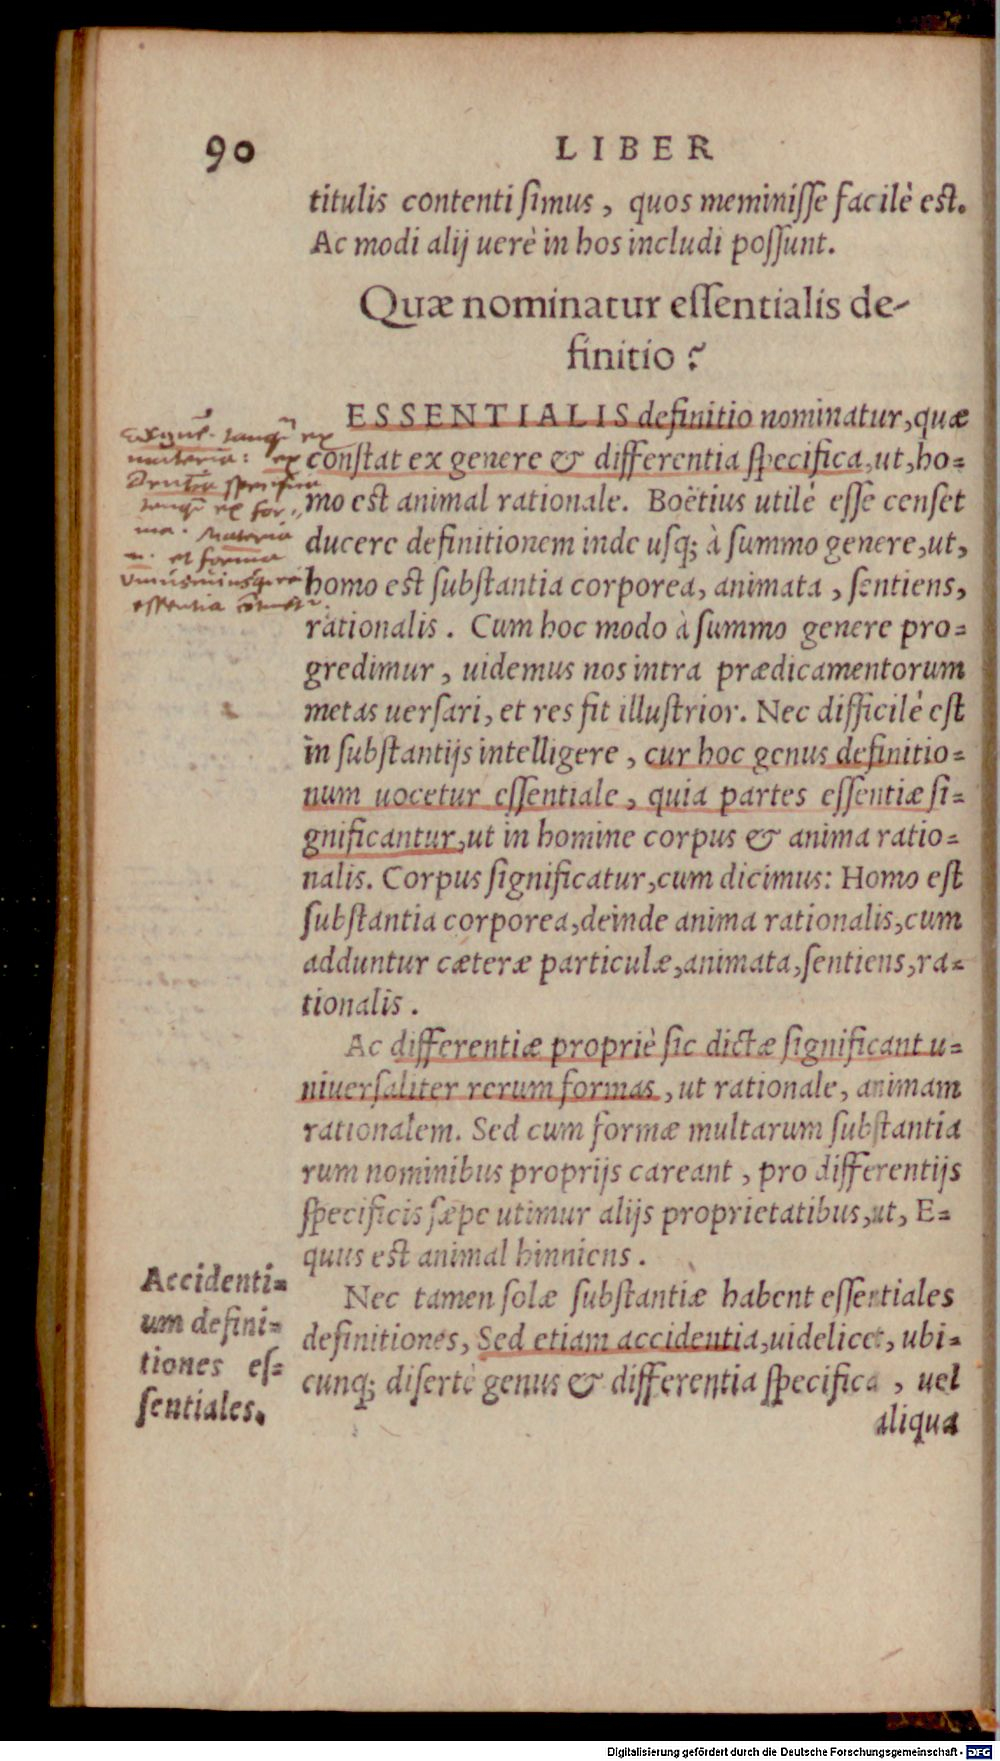 90 LIBER
titulis contenti simus, quos meminisse facilè est.
Ac modi alij uerè in hos includi possunt.
Quæ nominatur essentialis de-
finitio?
ESSENTIALIS definitio nominatur, quæ
constat ex genere & differentia specifica, ut, ho=
mo est animal rationale. Boëtius utilè esse censet
ducere definitionem inde usq; à summo genere, ut,
homo est substantia corporea, animata, sentiens,
rationalis. Cum hoc modo à summo genere pro=
gredimur, uidemus nos intra prædicamentorum
metas uersari, et res fit illustrior. Nec difficilè est
in substantijs intelligere, cur hoc genus definitio=
num uocetur essentiale, quia partes essentiæ si=
gnificantur, ut in homine corpus & anima ratio=
nalis. Corpus significatur, cum dicimus: Homo est
substantia corporea, deinde anima rationalis, cum
adduntur cæteræ particulæ, animata, sentiens, ra=
tionalis.
Ac differentiæ propriè sic dictæ significant u=
niuersaliter rerum formas, ut rationale, animam
rationalem. Sed cum formæ multarum substantia
rum nominibus proprijs careant, pro differentijs
specificis sæpe utimur alijs proprietatibus, ut, E=
quus est animal hinniens.
Nec tamen solæ substantiæ habent essentiales
definitiones, Sed etiam accidentia, uidelicet, ubi=
cunq; disertè genus & differentia specifica, uel
aliqua
ex
materia: ex
specifica
ex for
ma. Materia
n. et forma
essentia
Accidenti=
um defini=
tiones es=
sentiales.
Digitalisierung gefördert durch die Deutsche Forschungsgemeinschaft - DFG